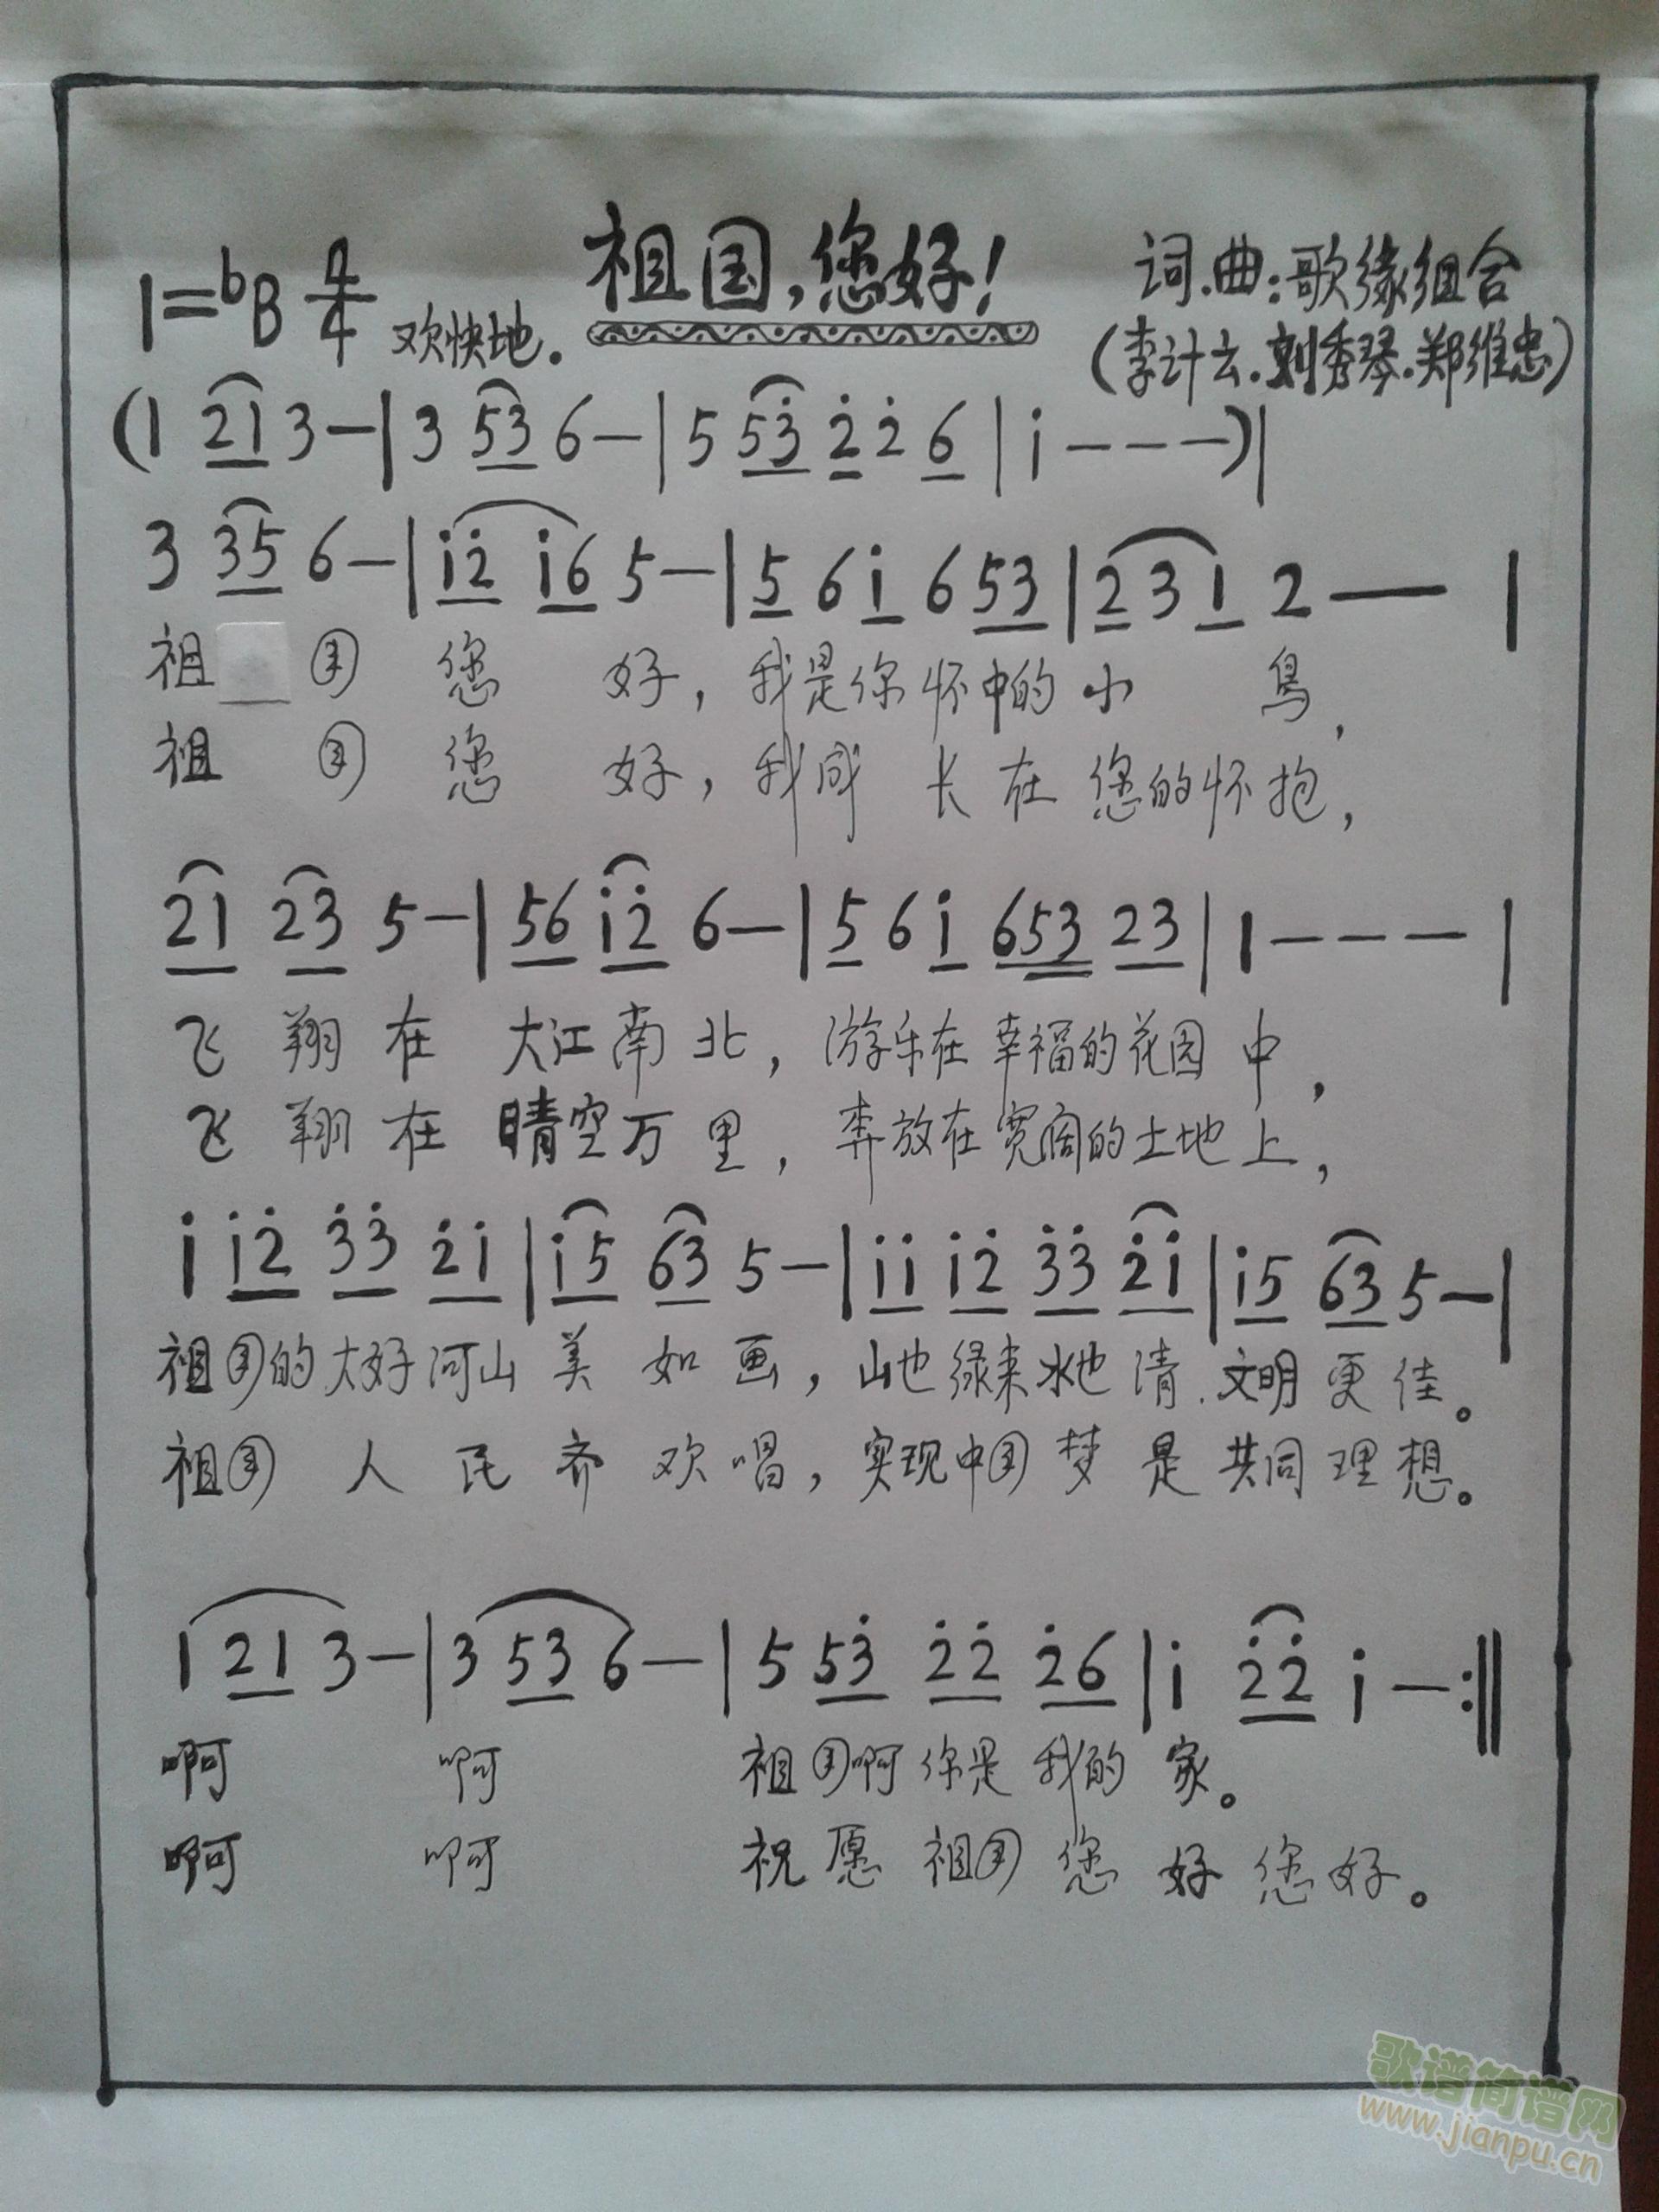 祖国,您好!
1=bB 4/4 欢快地.
词.曲:歌缘组合
(李计云.刘秀琴.郑维忠)
(1 21 3—|3 53 6—|5 53̇ 2̇ 2̇ 6|1̇ - - -)|
3 35 6—|1̇2̇ 1̇6 5—|5 6 1̇ 6 53|2 3 1 2 — |
祖 国 您 好,我是你怀中的小 鸟,
祖 国 您 好,我成 长 在 您的怀抱,
21 23 5—|56 1̇2̇ 6—|5 6 1̇ 653 23|1 - - - |
飞 翔 在 大江南 北,游乐在幸福的花园 中,
飞 翔 在 晴空万 里,奔放在宽阔的土地上,
1̇ 1̇2̇ 3̇3̇ 2̇1̇|1̇5 63 5—|1̇1̇ 1̇2̇ 3̇3̇ 2̇1̇|1̇5 63 5—|
祖国的大好河山 美 如 画,山也绿来水也 清.文明更佳。
祖国 人 民 齐 欢 唱,实现中国 梦 是 共同 理 想。
1 21 3—|3 53 6—|5 53̇ 2̇2̇ 2̇6|1̇ 2̇2̇ 1̇ —:‖
啊 啊 祖国啊 你是 我的 家。
啊 啊 祝愿 祖国 您 好 您好。
歌谱简谱网
www.jianpu.cn